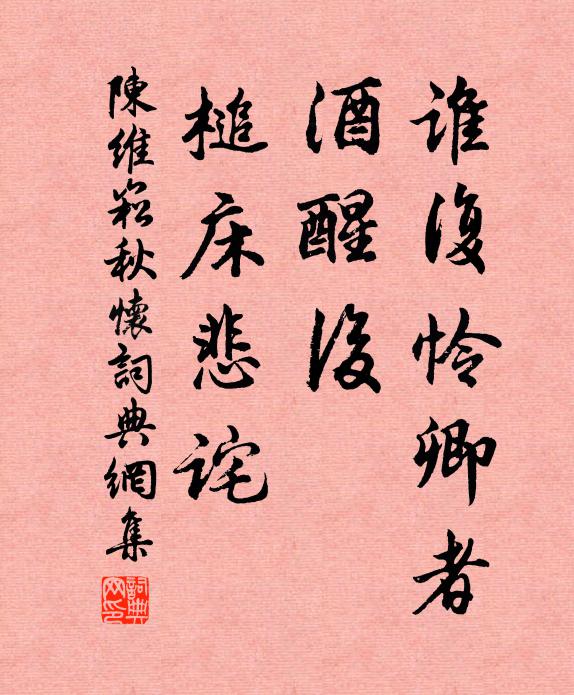 誰復怜卿者
酒醒後
槌床悲詫
陳維崧秋懷詞典網集
詞典網印